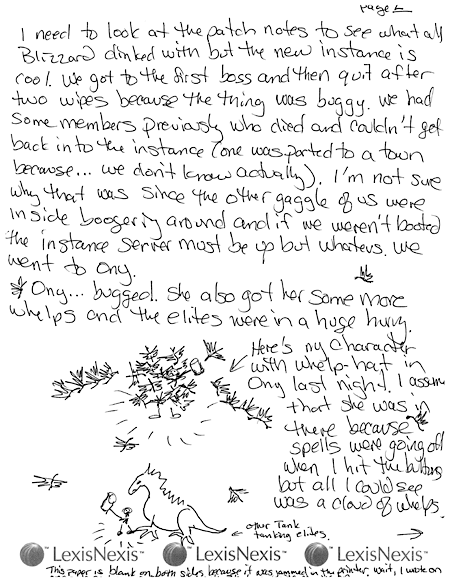 Page 1
I need to look at the patch notes to see what all
Blizzard dinked with but the new instance is
cool. We got to the first boss and then quit after
two wipes because the thing was buggy. We had
some members previously who died and couldn't get
back into the instance (one was ported to a town
because... we don't know actually). I'm not sure
why that was since the other gaggle of us were
inside boogerig around and if we weren't booted
the instance server must be up but whatevs. We
went to Ony.
* Ony... bugged. She also got her some more
whelps and the elites were in a huge hurry.
Here's my character
with whelp-hat in
Ony last night. I assume
that she was in
there because
spells were going off
when I hit the buttons
but all I could see
was a cloud of whelps.
← other Tank
tanking elites.
LexisNexis™ LexisNexis™ LexisNexis™
This paper is blank on both sides because it was jammed in the printer. Wait, I wrote on